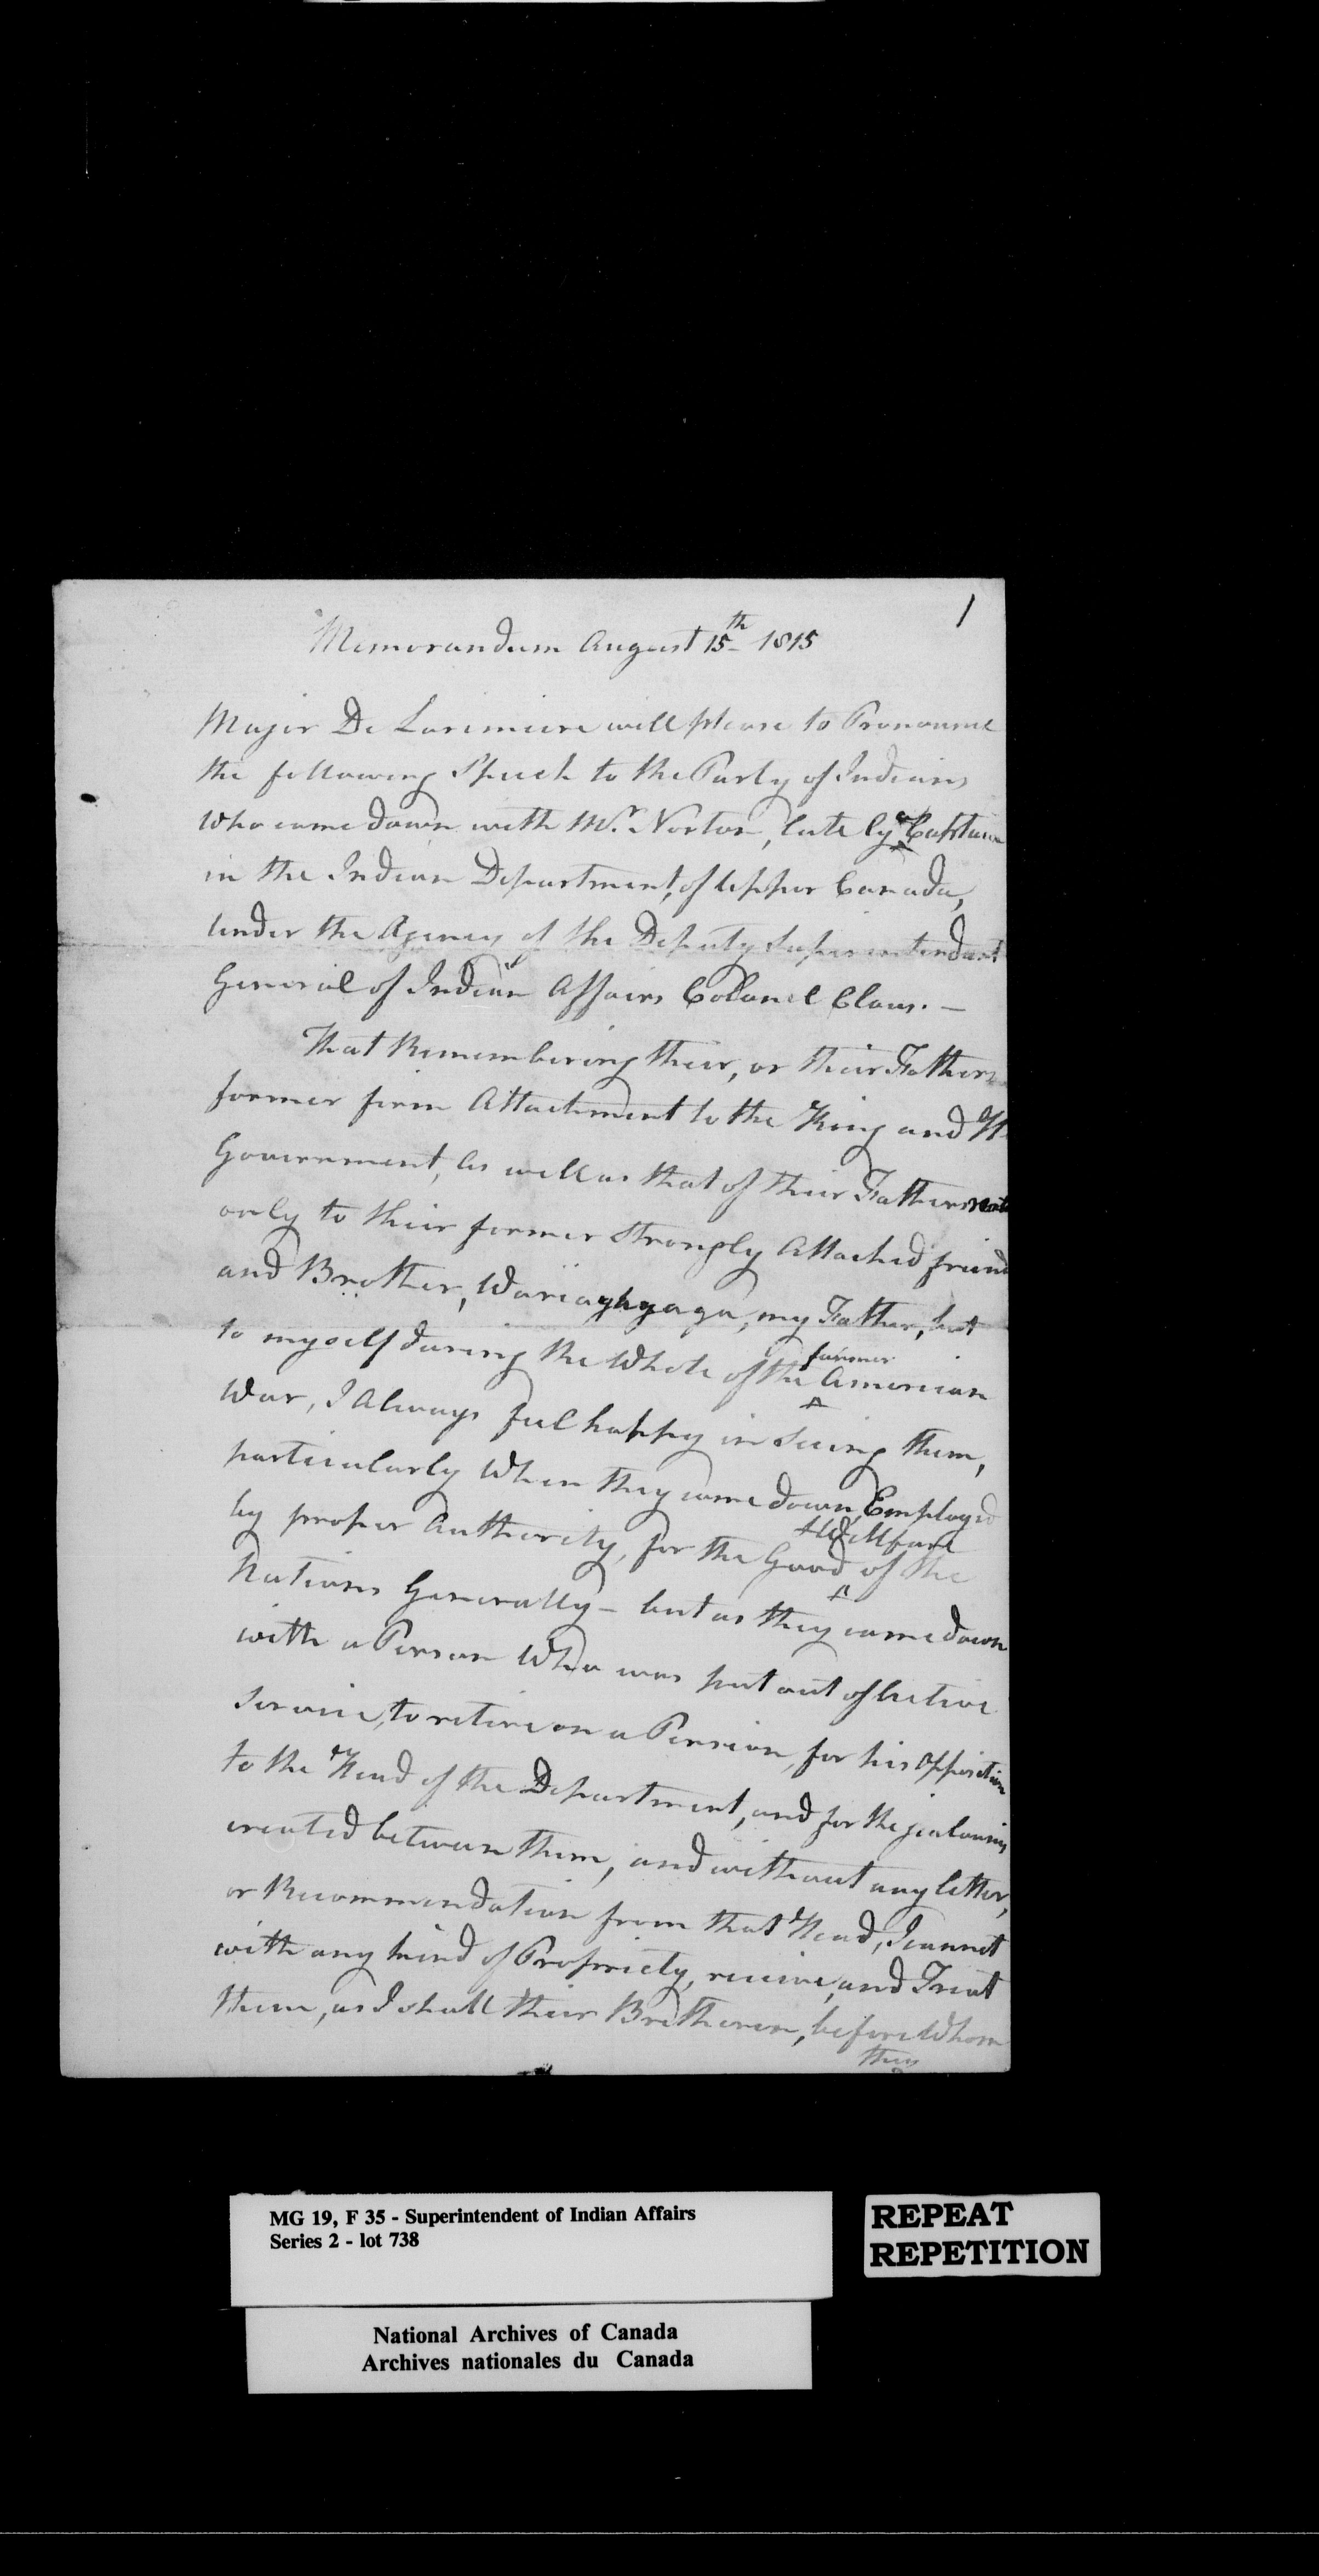 1
Memorandum August 15th 1815
Major De Lorimiere will please to Pronounce
the following Speech to the Party of Indians
Who came down with Mr. Norton, lately a Captain
in the Indian Department, of Upper Canada,
Under the Agency of the Deputy Superintendant
General of Indian Affairs Colonel Claus. —
That Remembering their, or their Fathers
former firm Attachment to the King and
Government, as well as that of their Fathers not
only to their former Strongly Attached friend
and Brother, Wariaghyaga, my Father, but
to myself during the Whole of the former American
War, I Always feel happy in Seeing them,
particularly When they come down, Employed
by proper Authority, for the Good & Wellfare of the
Nations Generally — but as they came down
with a Person Who was put out of Active
Service, to retire on a Pension, for his Opposition
to the Head of the Department, and for the jealousies
created between them, and without any letter,
or Recommendation from that Head, I cannot
with any kind of Propriety, receive, and Treat
them, as I shall their Bretheren, before Whom
they
MG 19, F 35 - Superintendent of Indian Affairs
Series 2 - lot 738
REPEAT
REPETITION
National Archives of Canada
Archives nationales du Canada